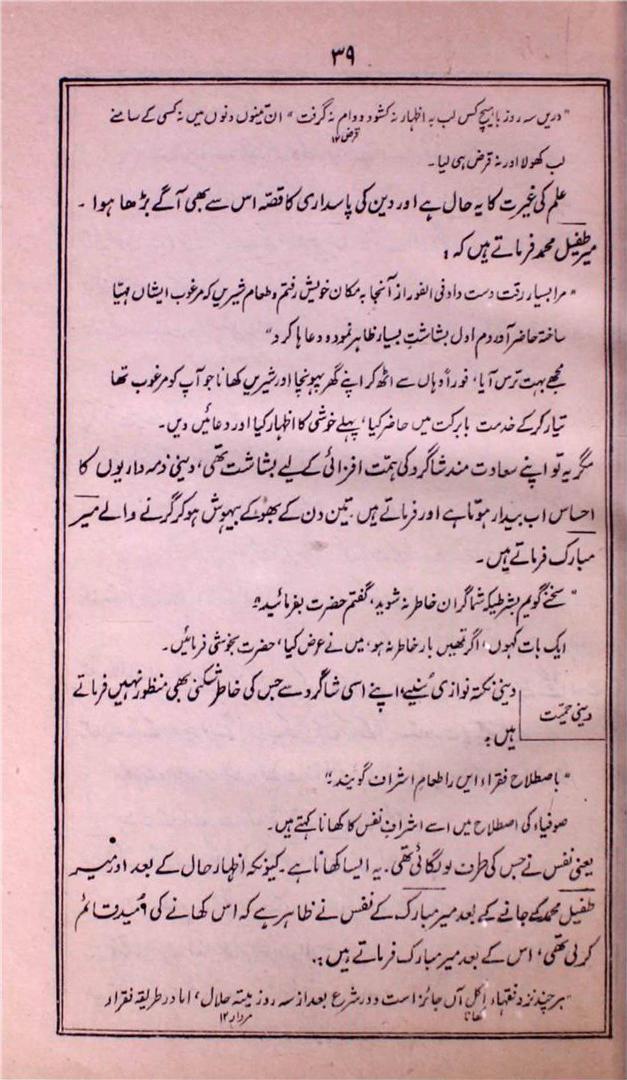 ۳۹
"دریں سہ روز با ہیچ کس لب بہ اظہار نہ کشود و وام نہ گرفت" ان تینوں دنوں میں نہ کسی کے سامنے
قرض ۱۲
لب کھولا اور نہ قرض ہی لیا۔
علم کی غیرت کا یہ حال ہے اور دین کی پاسداری کا قصہ اس سے بھی آگے بڑھا ہوا۔
میر طفیل محمد فرماتے ہیں کہ:
"مرا بسیار رقت دست داد فی الفور از آنجا بہ مکان خویش رفتم و طعام شیریں کہ مرغوب ایشاں مہیا
ساختہ حاضر آوردم اول بشاشت بسیار ظاہر نمود و دعاہا کرد"
مجھے بہت ترس آیا، فوراً وہاں سے اٹھ کر اپنے گھر پہونچا اور شیریں کھانا جو آپ کو مرغوب تھا
تیار کر کے خدمت بابرکت میں حاضر کیا، پہلے خوشی کا اظہار کیا اور دعائیں دیں۔
مگر یہ تو اپنے سعادت مند شاگرد کی ہمت افزائی کے لیے بشاشت تھی، دینی ذمہ داریوں کا
احساس اب بیدار ہوتا ہے اور فرماتے ہیں۔ تین دن کے بھوکے بیہوش ہو کر گرنے والے میر
مبارک فرماتے ہیں۔
"سخنے گویم بشرطیکہ شما گران خاطر نہ شوید، گفتم حضرت بفرمائید"
ایک بات کہوں، اگر تمھیں بار خاطر نہ ہو، میں نے عرض کیا، حضرت بخوشی فرمائیں۔
دینی نکتہ نوازی سُنیے، اپنے اسی شاگرد سے جس کی خاطر شکنی بھی منظور نہیں فرماتے
دینی حمیت
ہیں:
"باصطلاح فقراء ایں را طعام اشراف گویند"
صوفیاء کی اصطلاح میں اسے اشرافِ نفس کا کھانا کہتے ہیں۔
یعنی نفس نے جس کی طرف لو لگائی تھی۔ یہ ایسا کھانا ہے۔ کیونکہ اظہار حال کے بعد اور میر
طفیل محمد کے جانے کے بعد میر مبارک کے نفس نے ظاہر ہے کہ اس کھانے کی امید قائم
کر لی تھی، اس کے بعد میر مبارک فرماتے ہیں:
"ہر چند نزد فقہاء اکل آں جائز است و در شرع بعد از سہ روز میتہ حلال، اما در طریقہ فقراء
کھانا مردار ۱۲